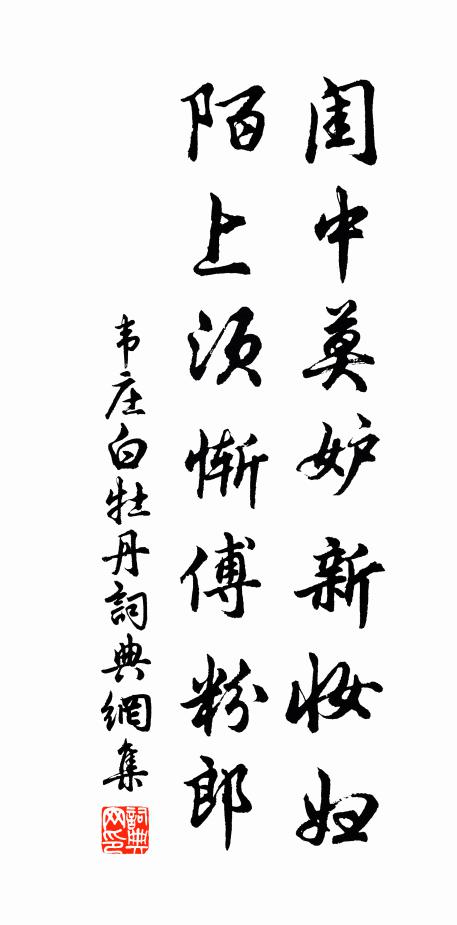 闺中莫妒新妆妇
陌上须惭傅粉郎
韦庄白牡丹詞典網集
詞典网印